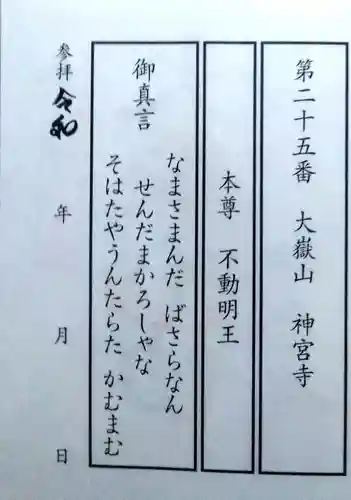 第二十五番 大嶽山 神宮寺
本尊 不動明王
御真言
なまさまんだ ばさらなん
せんだまかろしゃな
そはたやうんたらた かむまむ
参拝 令和 年 月 日